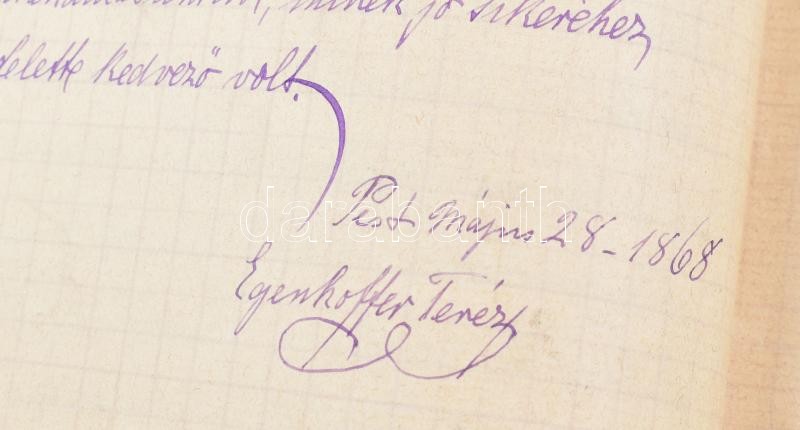 minek jó sikeréhez
felette kedvező volt.
Pest május 28-1868
Egenhoffer Teréz
darabanth